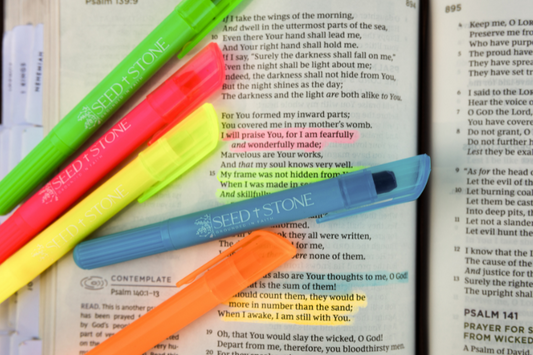 Psalm 139:9
894
If I take the wings of the morning,
And dwell in the uttermost parts of the sea,
10 Even there Your hand shall lead me,
And Your right hand shall hold me.
"If I say, "Surely the darkness shall fall on me,"
Even the night shall be light about me;
Indeed, the darkness shall not hide from You,
But the night shines as the day;
The darkness and the light are both alike to You.
For You formed my inward parts;
You covered me in my mother's womb.
I will praise You, for I am fearfully
and wonderfully made;
Marvelous are Your works,
And that my soul knows very well.
15 My frame was not hidden from
When I was made in
And skillfully
they all were written,
for me,
were none of them.
also are Your thoughts to me, O God!
is the sum of them!
should count them, they would be
more in number than the sand;
When I awake, I am still with You.
19 Oh, that You would slay the wicked, O God!
Depart from me, therefore, you bloodthirsty men.
20
CONTEMPLATE
Psalm 140:1–13
READ. This is another
has been prayed
by God's people
part of
SEED STONE
SEED STONE
SEED STONE
SEED STONE
895
4 Keep me, O LORD
Preserve me from
Who have purpo
5 The proud have
They have sprea
They have set tr
6 I said to the LORD
Hear the voice o
7 O GOD the Lord,
You have covere
8 Do not grant, O
Do not further h
Lest they be exal
9 "As for the head o
Let the evil of the
10 Let burning coal
Let them be cast
Into deep pits, th
11 Let not a slander
Let evil hunt the
12 I know that the L
The cause of the
And justice for th
13 Surely the righte
The upright shal
PSALM 141
PRAYER FOR S
FROM WICKED
A Psalm of David.